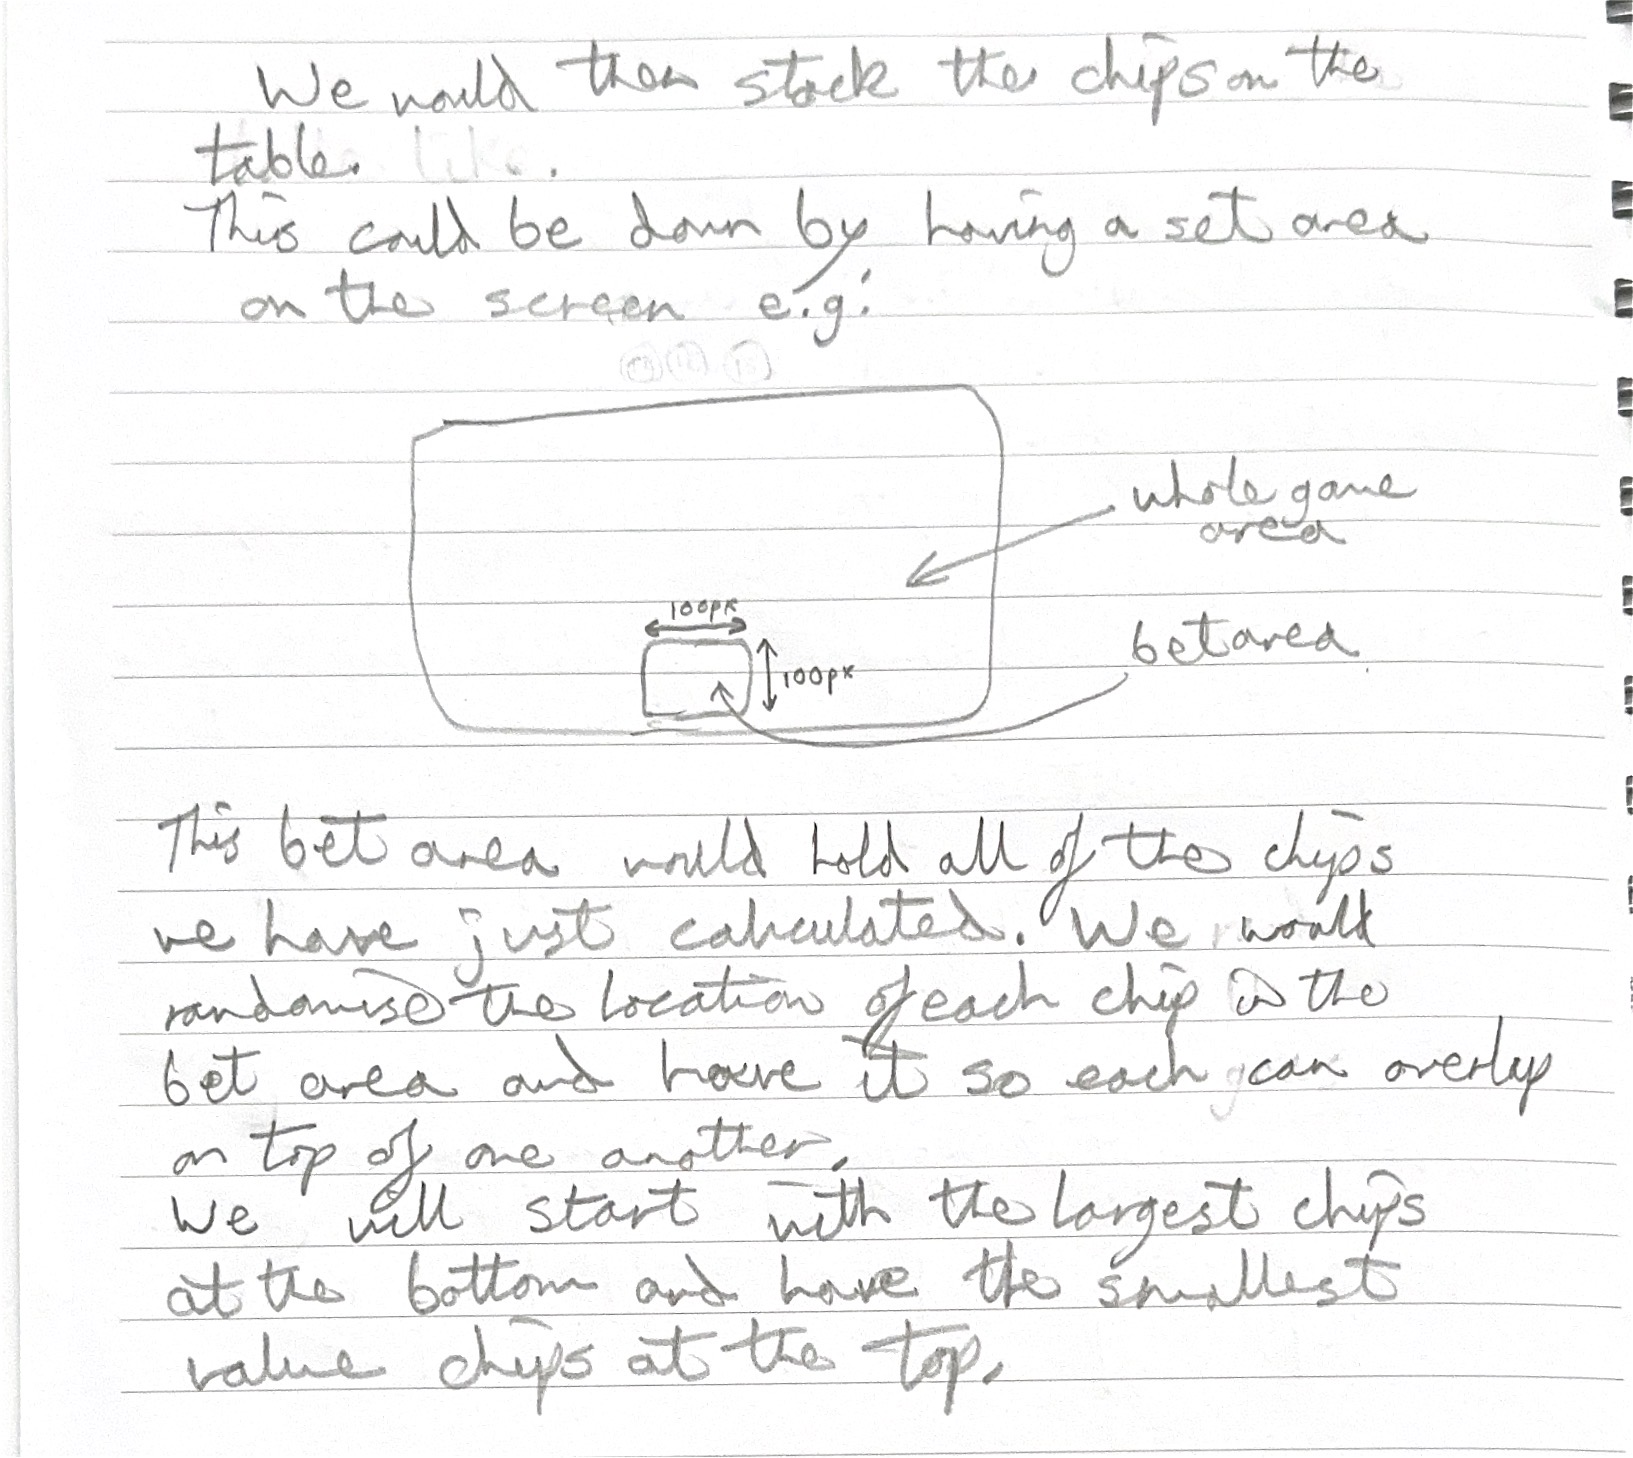 We would then stack the chips on the
table. like.
This could be down by having a set area
on the screen e.g:
whole game
area
100px
100px
bet area
This bet area would hold all of the chips
we have just calculated. We would
randomise the location of each chip in the
bet area and have it so each can overlap
on top of one another.
We will start with the largest chips
at the bottom and have the smallest
value chips at the top.